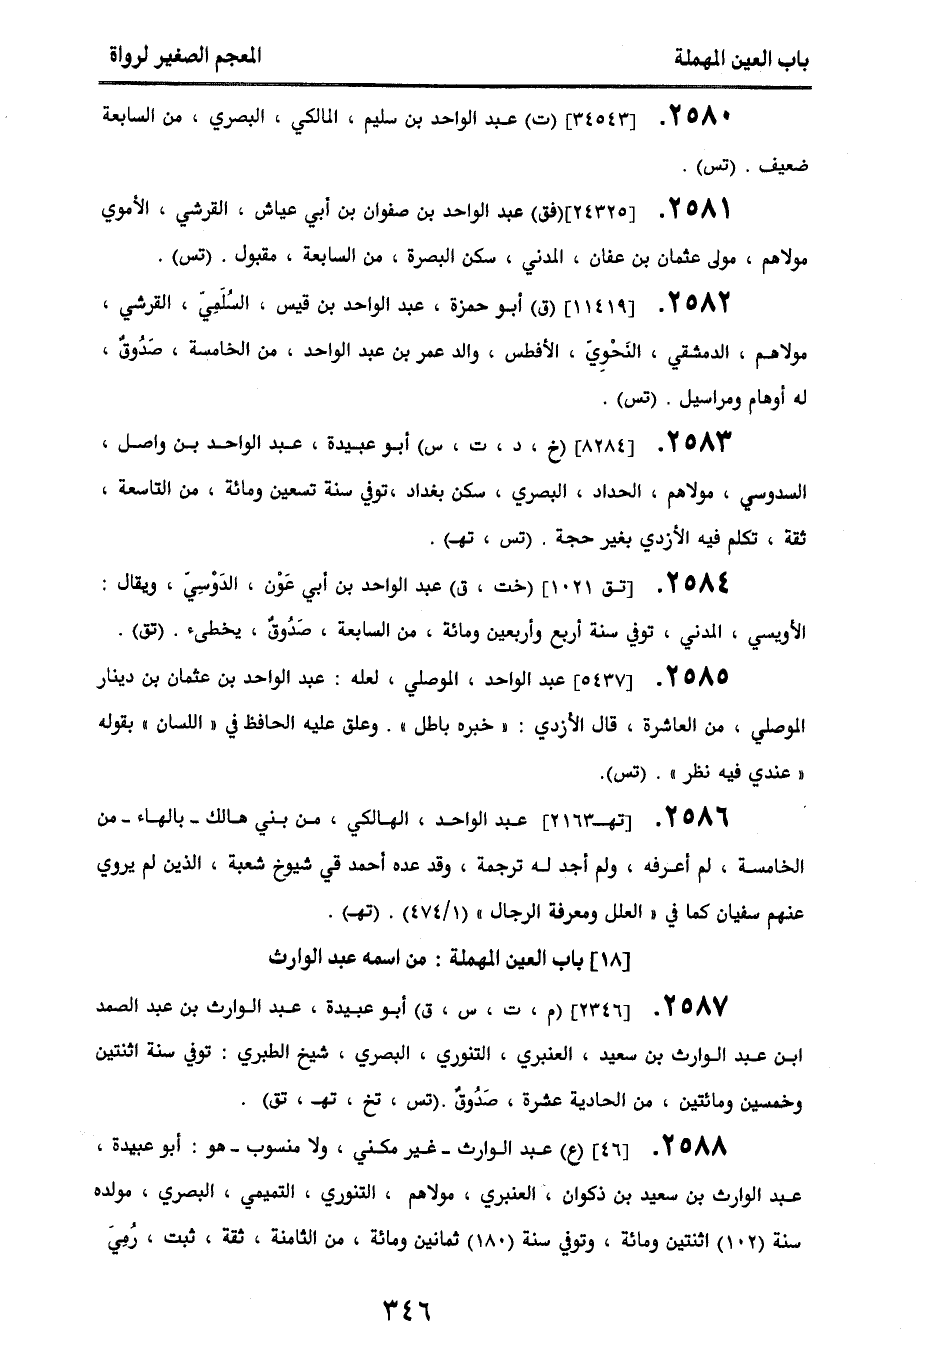 باب العين المهملة المعجم الصغير لرواة
٢٥٨٠. [٣٤٥٤٣] (ت) عبد الواحد بن سليم ، المالكي ، البصري ، من السابعة
ضعيف . (تس) .
٢٥٨١. [٢٤٣٢٥](فق) عبد الواحد بن صفوان بن أبي عياش ، القرشي ، الأموي
مولاهم ، مولى عثمان بن عفان ، المدني ، سكن البصرة ، من السابعة ، مقبول . (تس) .
٢٥٨٢. [١١٤١٩] (ق) أبو حمزة ، عبد الواحد بن قيس ، السُلَمِيّ ، القرشي ،
مولاهم ، الدمشقي ، النَحْوِيّ ، الأفطس ، والد عمر بن عبد الواحد ، من الخامسة ، صَدُوقٌ ،
له أوهام ومراسيل . (تس) .
٢٥٨٣. [٨٢٨٤] (خ ، د ، ت ، س) أبو عبيدة ، عبد الواحد بن واصل ،
السدوسي ، مولاهم ، الحداد ، البصري ، سكن بغداد ،توفي سنة تسعين ومائة ، من التاسعة ،
ثقة ، تكلم فيه الأزدي بغير حجة . (تس ، تهـ) .
٢٥٨٤. [تق ١٠٢١] (خت ، ق) عبد الواحد بن أبي عَوْن ، الدَوْسِيّ ، ويقال :
الأويسي ، المدني ، توفي سنة أربع وأربعين ومائة ، من السابعة ، صَدُوقٌ ، يخطىء . (تق) .
٢٥٨٥. [٥٤٣٧] عبد الواحد ، الموصلي ، لعله : عبد الواحد بن عثمان بن دينار
الموصلي ، من العاشرة ، قال الأزدي : « خبره باطل » . وعلق عليه الحافظ في « اللسان » بقوله
« عندي فيه نظر » . (تس).
٢٥٨٦. [تهـ٢١٦٣] عبد الواحد ، الهالكي ، من بني هالك ـ بالهاء ـ من
الخامسة ، لم أعرفه ، ولم أجد له ترجمة ، وقد عده أحمد قي شيوخ شعبة ، الذين لم يروي
عنهم سفيان كما في « العلل ومعرفة الرجال » (٤٧٤/١) . (تهـ) .
[١٨] باب العين المهملة : من اسمه عبد الوارث
٢٥٨٧. [٢٣٤٦] (م ، ت ، س ، ق) أبو عبيدة ، عبد الوارث بن عبد الصمد
ابن عبد الوارث بن سعيد ، العنبري ، التنوري ، البصري ، شيخ الطبري : توفي سنة اثنتين
وخمسين ومائتين ، من الحادية عشرة ، صَدُوقٌ .(تس ، تخ ، تهـ ، تق) .
٢٥٨٨. [٤٦] (ع) عبد الوارث ـ غير مكني ، ولا منسوب ـ هو : أبو عبيدة ،
عبد الوارث بن سعيد بن ذكوان ، العنبري ، مولاهم ، التنوري ، التميمي ، البصري ، مولده
سنة (١٠٢) اثنتين ومائة ، وتوفي سنة (١٨٠) ثمانين ومائة ، من الثامنة ، ثقة ، ثبت ، رُمِيَ
٣٤٦